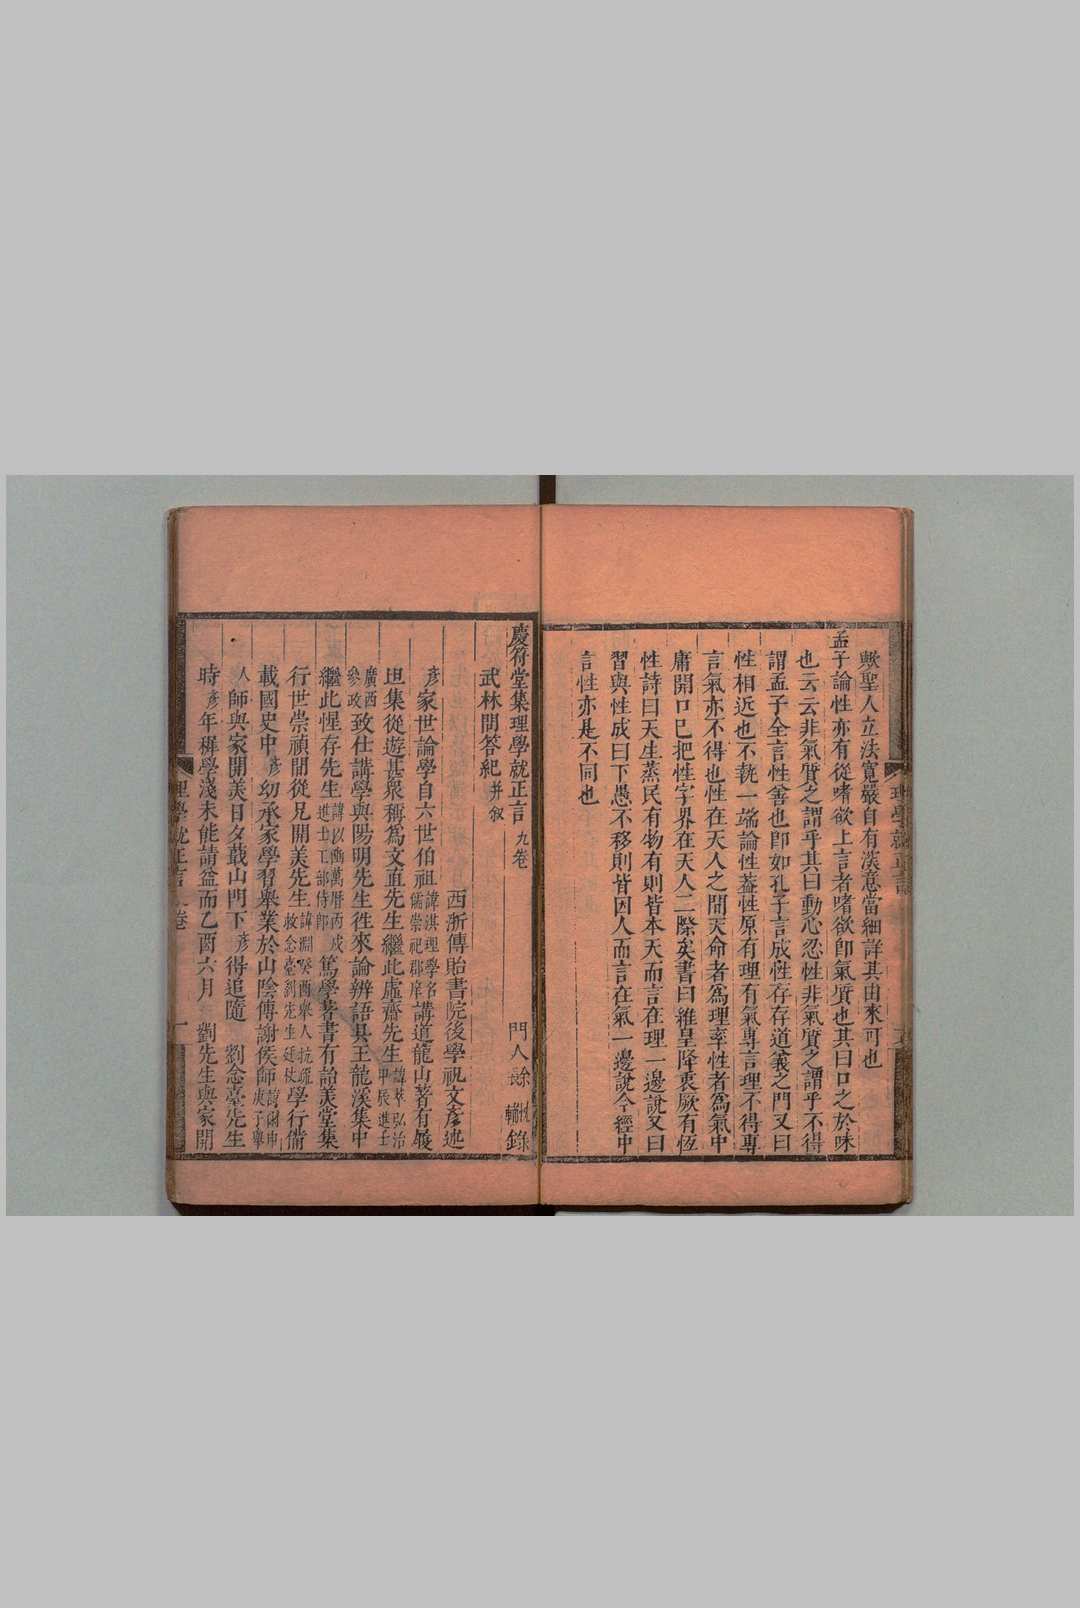 歟聖人立法寬嚴自有深意當細詳其由來可也
孟子論性亦有從嗜欲上言者嗜欲卽氣質也其曰口之於味
也云云非氣質之謂乎其曰動心忍性非氣質之謂乎不得
謂孟子全言性善也卽如孔子言成性存存道義之門又曰
性相近也不執一端論性蓋性原有理有氣專言理不得專
言氣亦不得也性在天人之間天命者為理率性者為氣中
庸開口已把性字界在天人二際矣書曰維皇降衷厥有恆
性詩曰天生蒸民有物有則皆本天而言在理一邊說又曰
習與性成曰下愚不移則皆因人而言在氣一邊說今經中
言性亦是不同也
慶符堂集理學就正言 九卷
門人 錄
武林問答紀 并敘
西浙傳貽書院後學祝文彥述
彥家世論學自六世伯祖 諱淇理學名儒崇祀郡庠 講道龍山著有履
坦集從遊甚眾稱為文直先生繼此虛齋先生 諱萃弘治甲辰進士
廣西參政 致仕講學與陽明先生往來論辨語具王龍溪集中
繼此惺存先生 諱以豳萬曆丙戌進士工部侍郎 篤學著書有詒美堂集
行世崇禎間從兄開美先生 諱淵癸酉舉人抗疏救念臺劉先生廷杖 學行備
載國史中彥幼承家學習舉業於山陰傅謝侯師 庚子舉
人師與家開美日夕蕺山門下彥得追隨 劉念臺先生
時彥年穉學淺未能請益而乙酉六月 劉先生與家開
理學就正言 卷 一